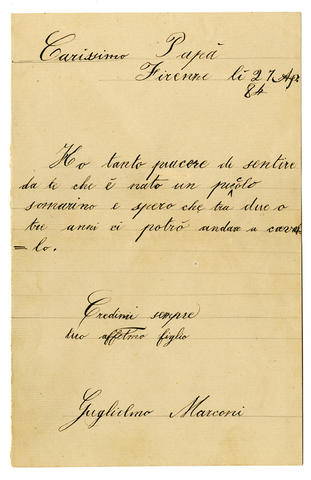 Carissimo Papà
Firenze li 27 Apr
84
Ho tanto piacere di sentire
da te che é nato un piccolo
somarino e spero che tra due o
tre anni ci potró andare a caval
=lo.
Credimi sempre
tuo affetmo figlio
Guglielmo Marconi